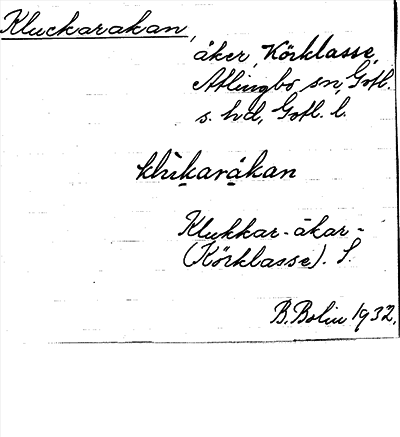 Kluckarakan,
åker, Körklasse,
Atlingbo sn, Gotl.
s. hd, Gotl. l.
klùkaràkan
Klukkar-åkar-
(Körklasse). S.
B. Bolin 1932.